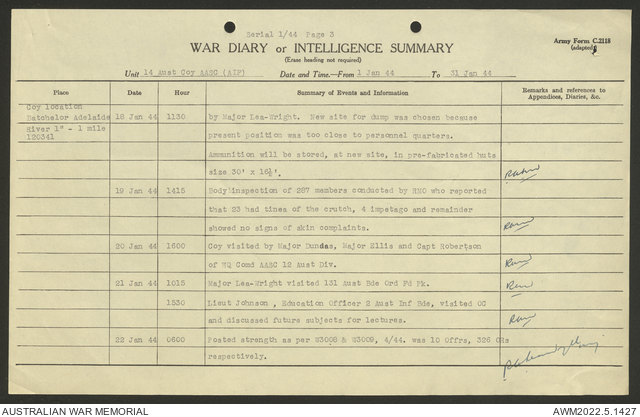 Serial 1/44 Page 3
Army Form C.2118
(adapted)
WAR DIARY or INTELLIGENCE SUMMARY
(Erase heading not required)
Unit 14 Aust Coy AASC (AIP) Date and Time.—From 1 Jan 44 To 31 Jan 44
Place Date Hour Summary of Events and Information Remarks and references to Appendices, Diaries, &c.
Coy location
Batchelor Adelaide 18 Jan 44 1130 by Major Lea-Wright. New site for dump was chosen because
River 1" - 1 mile present position was too close to personnel quarters.
120341
Ammunition will be stored, at new site, in pre-fabricated huts
size 30' x 16½'.
19 Jan 44 1415 Body inspection of 287 members conducted by RMO who reported
that 23 had tinea of the crutch, 4 impetago and remainder
showed no signs of skin complaints.
20 Jan 44 1600 Coy visited by Major Dundas, Major Ellis and Capt Robertson
of HQ Comd AASC 12 Aust Div.
21 Jan 44 1015 Major Lea-Wright visited 131 Aust Bde Ord Fd Pk.
1530 Lieut Johnson , Education Officer 2 Aust Inf Bde, visited OC
and discussed future subjects for lectures.
22 Jan 44 0600 Posted strength as per W3008 & W3009, 4/44. was 10 Offrs, 326 ORs
respectively.
AUSTRALIAN WAR MEMORIAL
AWM2022.5.1427